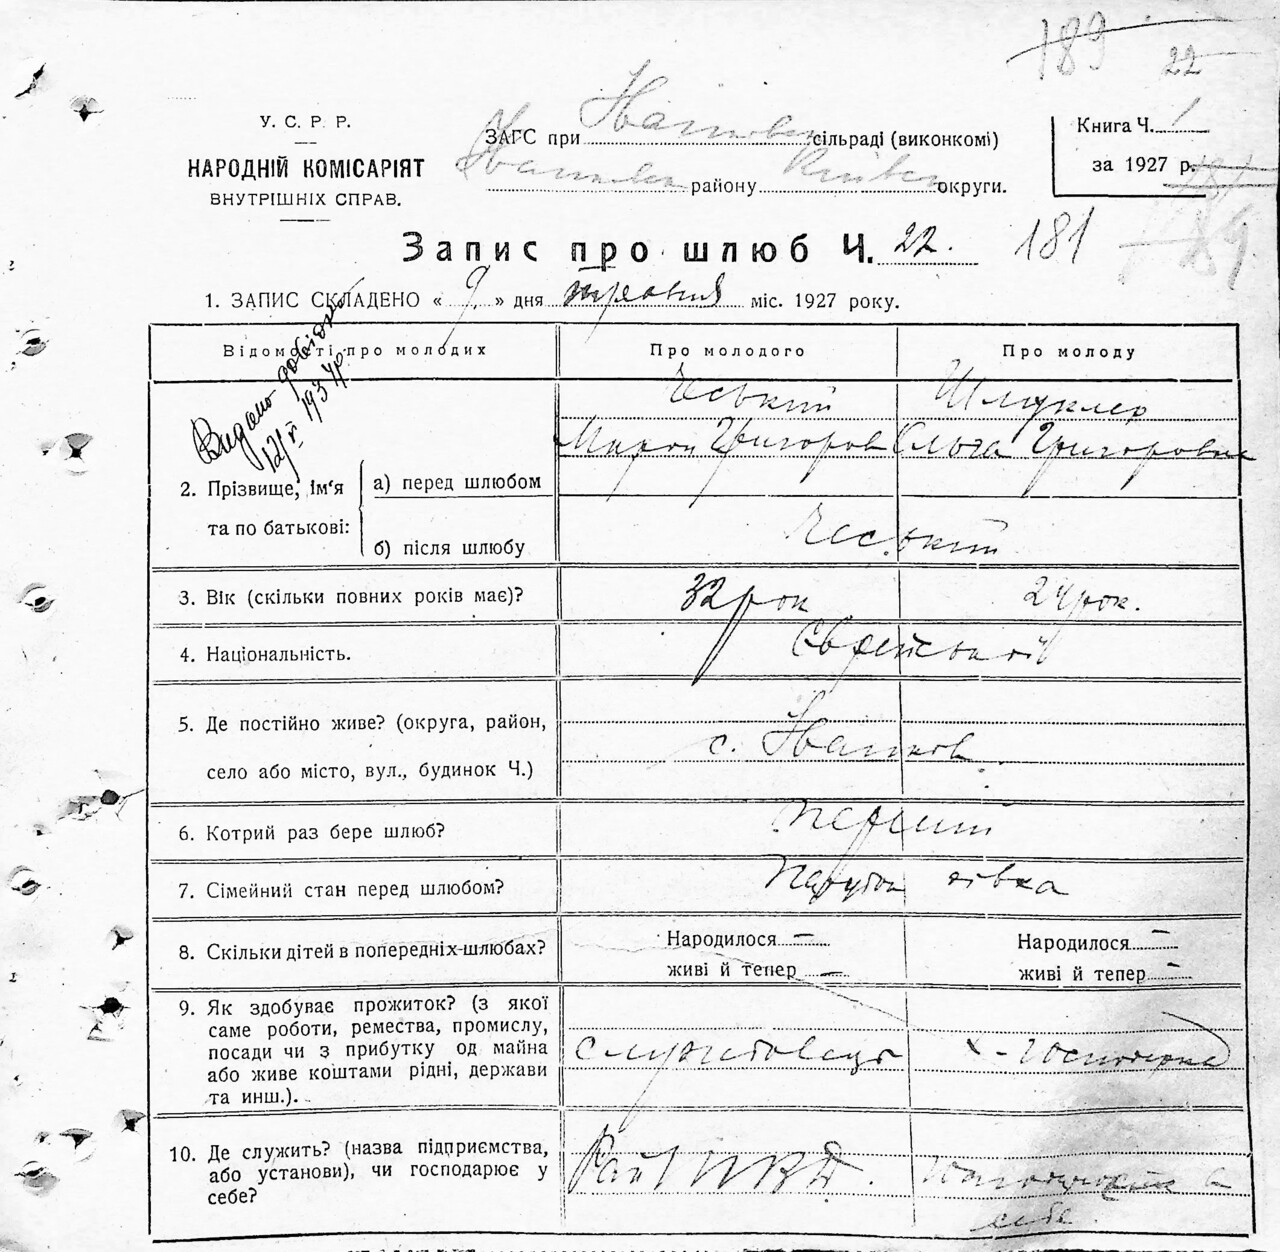 189
22
У. С. Р. Р.
НАРОДНІЙ КОМІСАРІЯТ
ВНУТРІШНІХ СПРАВ.
ЗАГС при Іванков сільраді (виконкомі)
Іванків району Київськ округи.
Книга Ч. 1
за 1927 р.
Запис про шлюб Ч. 22. 181
1. ЗАПИС СКЛАДЕНО « 9 » дня травня міс. 1927 року.
Видано довідку
12/V 1934 р
Відомості про молодих Про молодого Про молоду
2. Прізвище, ім'я та по батькові:
а) перед шлюбом
Чеський Шмуклер
Мирон Григоров Ольга Григоровна
б) після шлюбу
Чеський
3. Вік (скільки повних років має)? 32 рок 24 рок.
4. Національність. Єврейської
5. Де постійно живе? (округа, район,
село або місто, вул., будинок Ч.) с. Іванков.
6. Котрий раз бере шлюб? Перший
7. Сімейний стан перед шлюбом? Парубок дівка
8. Скільки дітей в попередніх шлюбах? Народилося — Народилося —
живі й тепер — живі й тепер —
9. Як здобуває прожиток? (з якої
саме роботи, ремества, промислу,
посади чи з прибутку од майна
або живе коштами рідні, держави
та инш.).
службовець х-господарка
10. Де служить? (назва підприємства,
або установи), чи господарює у
себе?
себе.